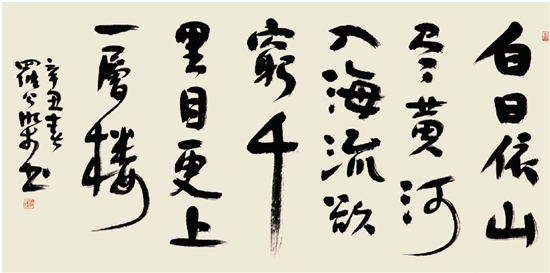 白日依山
尽黄河
入海流欲
窮千
里目更上
一層楼
辛丑春
羅